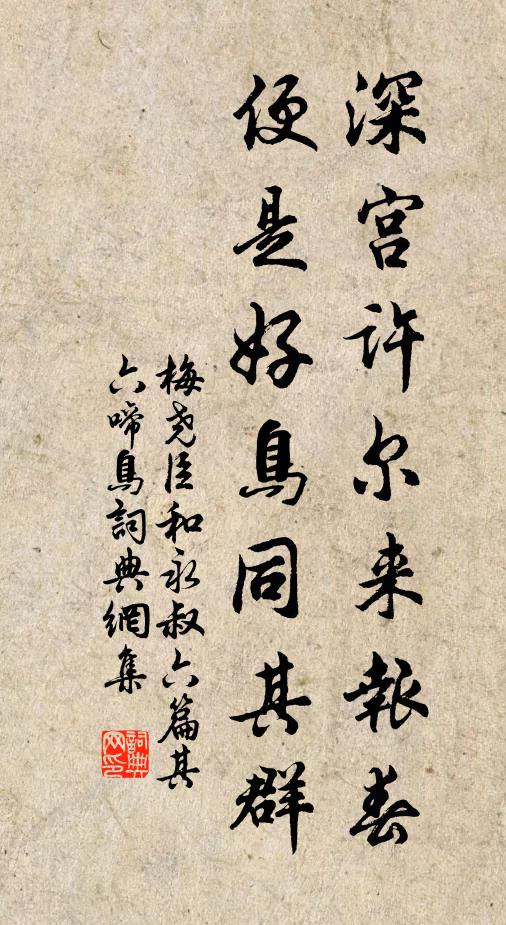 深宫许尔来報春
便是好鳥同其群
梅尧臣和永叔六篇其
六啼鳥詞典網集
詞典
网印